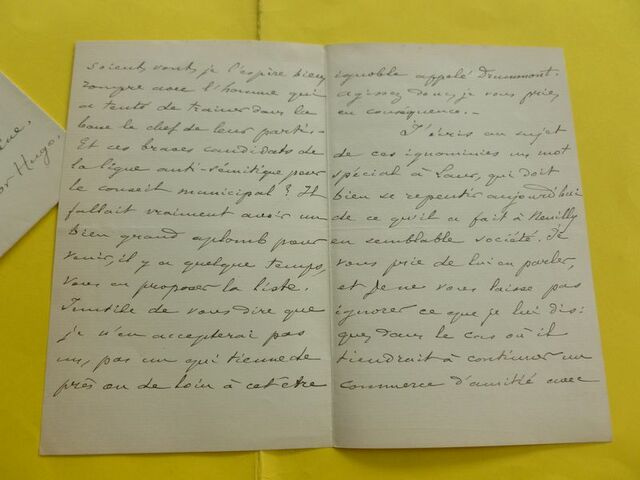 soient, vont, je l'espère bien,
rompre avec l'homme qui
a tenté de trainer dans la
boue le chef de leur parti. -
Et ces braves candidats de
la ligue anti-sémitique pour
le conseil municipal ? Il
fallait vraiment avoir un
bien grand aplomb pour
venir, il y a quelque temps,
vous en proposer la liste.
Inutile de vous dire que
je n'en accepterai pas
un, pas un qui tienne de
près ou de loin à cet être
ignoble appelé Drummont.
agissez donc, je vous prie,
en conséquence. -
J'écris au sujet
de ces ignominies un mot
spécial à Laur, qui doit
bien se repentir aujourd'hui
de ce qu'il a fait à Neuilly
en semblable société. Je
vous prie de lui en parler,
et je ne vous laisse pas
ignorer ce que je lui dis:
que, dans le cas où il
tiendrait à continuer un
commerce d'amitié avec
or Hugo.